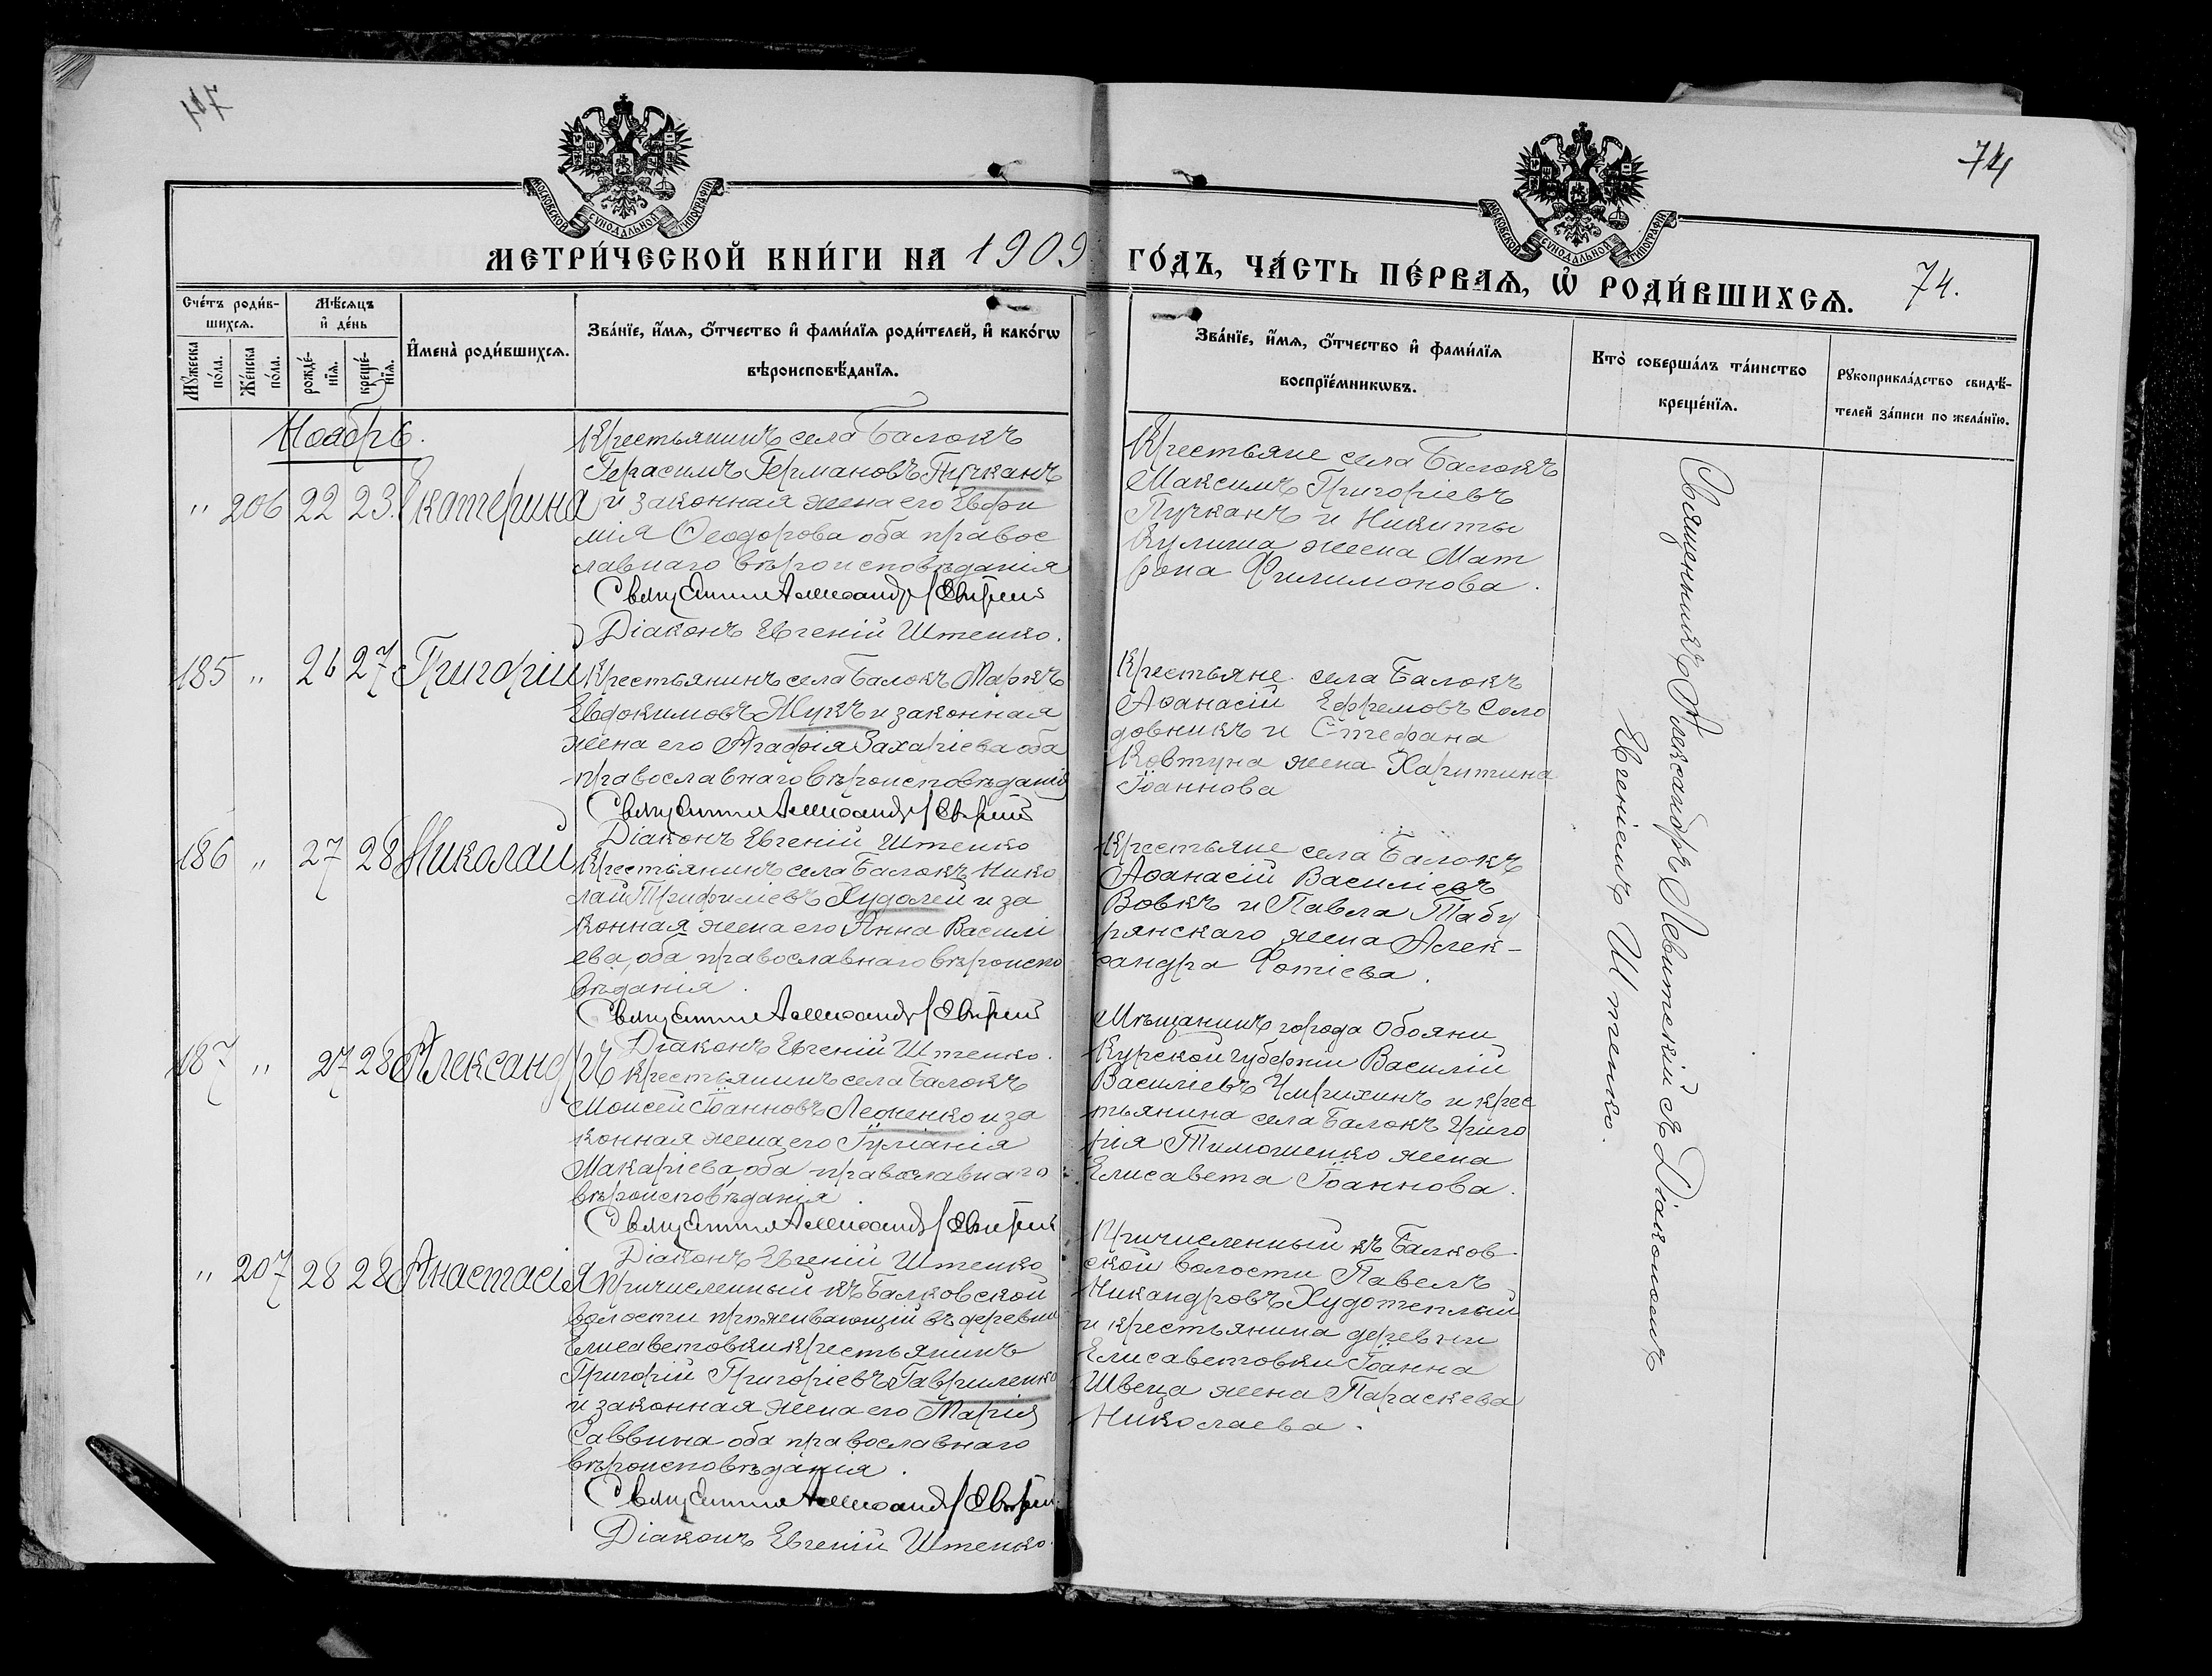 117
74
МОСКОВСКОЙ СѴНОДАЛЬНОЙ ТИПОГРАФІИ
МОСКОВСКОЙ СѴНОДАЛЬНОЙ ТИПОГРАФІИ
МЕТРИ́ЧЕСКОЙ КНИ́ГИ НА 1909
ГО́ДЪ, ЧА́СТЬ ПЕ́РВАѦ, Ѡ҆ РОДИ́ВШИХСѦ. 74.
Сче́тъ роди́в-
шихсѧ.
Мꙋ́жеска по́ла.
Же́нска по́ла.
Мѣ́сѧцъ
и҆ де́нь
рожде́-
нїѧ.
креще́-
нїѧ.
И҆мена̀ роди́вшихсѧ.
Зва́нїе, и҆́мѧ, ѻ҆́тчество и҆ фами́лїѧ роди́телей, и҆ како́гѡ
вѣроисповѣ́данїѧ.
Зва́нїе, и҆́мѧ, ѻ҆́тчество и҆ фами́лїѧ
воспрїе́мникѡвъ.
Кто̀ соверша́лъ та́инство
креще́нїѧ.
Рꙋкоприкла́дство свидѣ́-
телей за́писи по жела́нїю.
Ноябрь.
" 206 22 23. Екатерина
Крестьянинъ села Балокъ
Герасимъ Германовъ Пучканъ
и законная жена его Евфи
мія Ѳеодорова оба правос
лавнаго вѣроисповѣданія
Священникъ Александръ
Діаконъ Евгеній Штепко.
Крестьяне села Балокъ
Максимъ Григоріевъ
Пучканъ и Никиты
Кулиша жена Мат
рона Филимонова.
185 " 26 27 Григорій
Крестьянинъ села Балокъ Маркъ
Евдокимовъ Жукъ и законная
жена его Агафія Захаріева оба
православнаго вѣроисповѣданія
Священникъ Александръ
Діаконъ Евгеній Штепко
Крестьяне села Балокъ
Аѳанасій Ефремовъ Соло
довникъ и Стефана
Ковтуна жена Харитина
Іоаннова
186 " 27 28 Николай
Крестьянинъ села Балокъ Нико
лай Трифиліевъ Худолей и за
конная жена его Анна Василі
ева, оба православнаго вѣроиспо
вѣданія.
Священникъ Александръ
Діаконъ Евгеній Штепко.
Крестьяне села Балокъ
Аѳанасій Василіевъ
Вовкъ и Павла Табу
рянскаго жена Алек-
сандра Фотіева.
187 " 27 28 Александръ
Крестьянинъ села Балокъ
Моисей Іоанновъ Леоненко и за
конная жена его Іуліанія
Макаріева, оба православнаго
вѣроисповѣданія.
Священникъ Александръ
Діаконъ Евгеній Штепко
Мѣщанинъ города Обояни
Курской губерніи Василій
Василіевъ и крес
тьянина села Балокъ Григо
рія Тимошенко жена
Елисавета Іоаннова.
" 207 28 28 Анастасія
Причисленный къ Балковской
волости проживающій въ деревни
Елисаветовки крестьянинъ
Григорій Григоріевъ Гавриленко
и законная жена его Марія
Саввина оба православнаго
вѣроисповѣданія.
Священникъ Александръ
Діаконъ Евгеній Штепко.
Причисленный къ Балков-
ской волости Павелъ
Никандровъ Худотеплый
и крестьянина деревни
Елисаветовки Іоанна
Швеца жена Параскева
Николаева.
Священникъ Александръ Левитскій съ Діакономъ
Евгеніемъ Штепко.